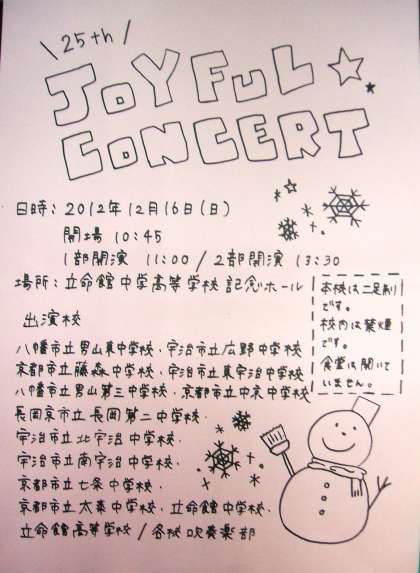 25th
JOYFUL
CONCERT
日時：2012年12月16日(日)
開場 10:45
1部開演 11:00 / 2部開演 13:30
場所：立命館中学高等学校記念ホール
本校は二足制
です。
校内は禁煙
です。
食堂は開いて
いません。
出演校
八幡市立男山東中学校・宇治市立広野中学校
京都市立藤森中学校・宇治市立東宇治中学校
八幡市立男山第三中学校・京都市立中京中学校
長岡京市立長岡第二中学校・
宇治市立北宇治中学校・
宇治市立南宇治中学校・
京都市立七条中学校・
京都市立太秦中学校・立命館中学校・
立命館高等学校 / 各校吹奏楽部